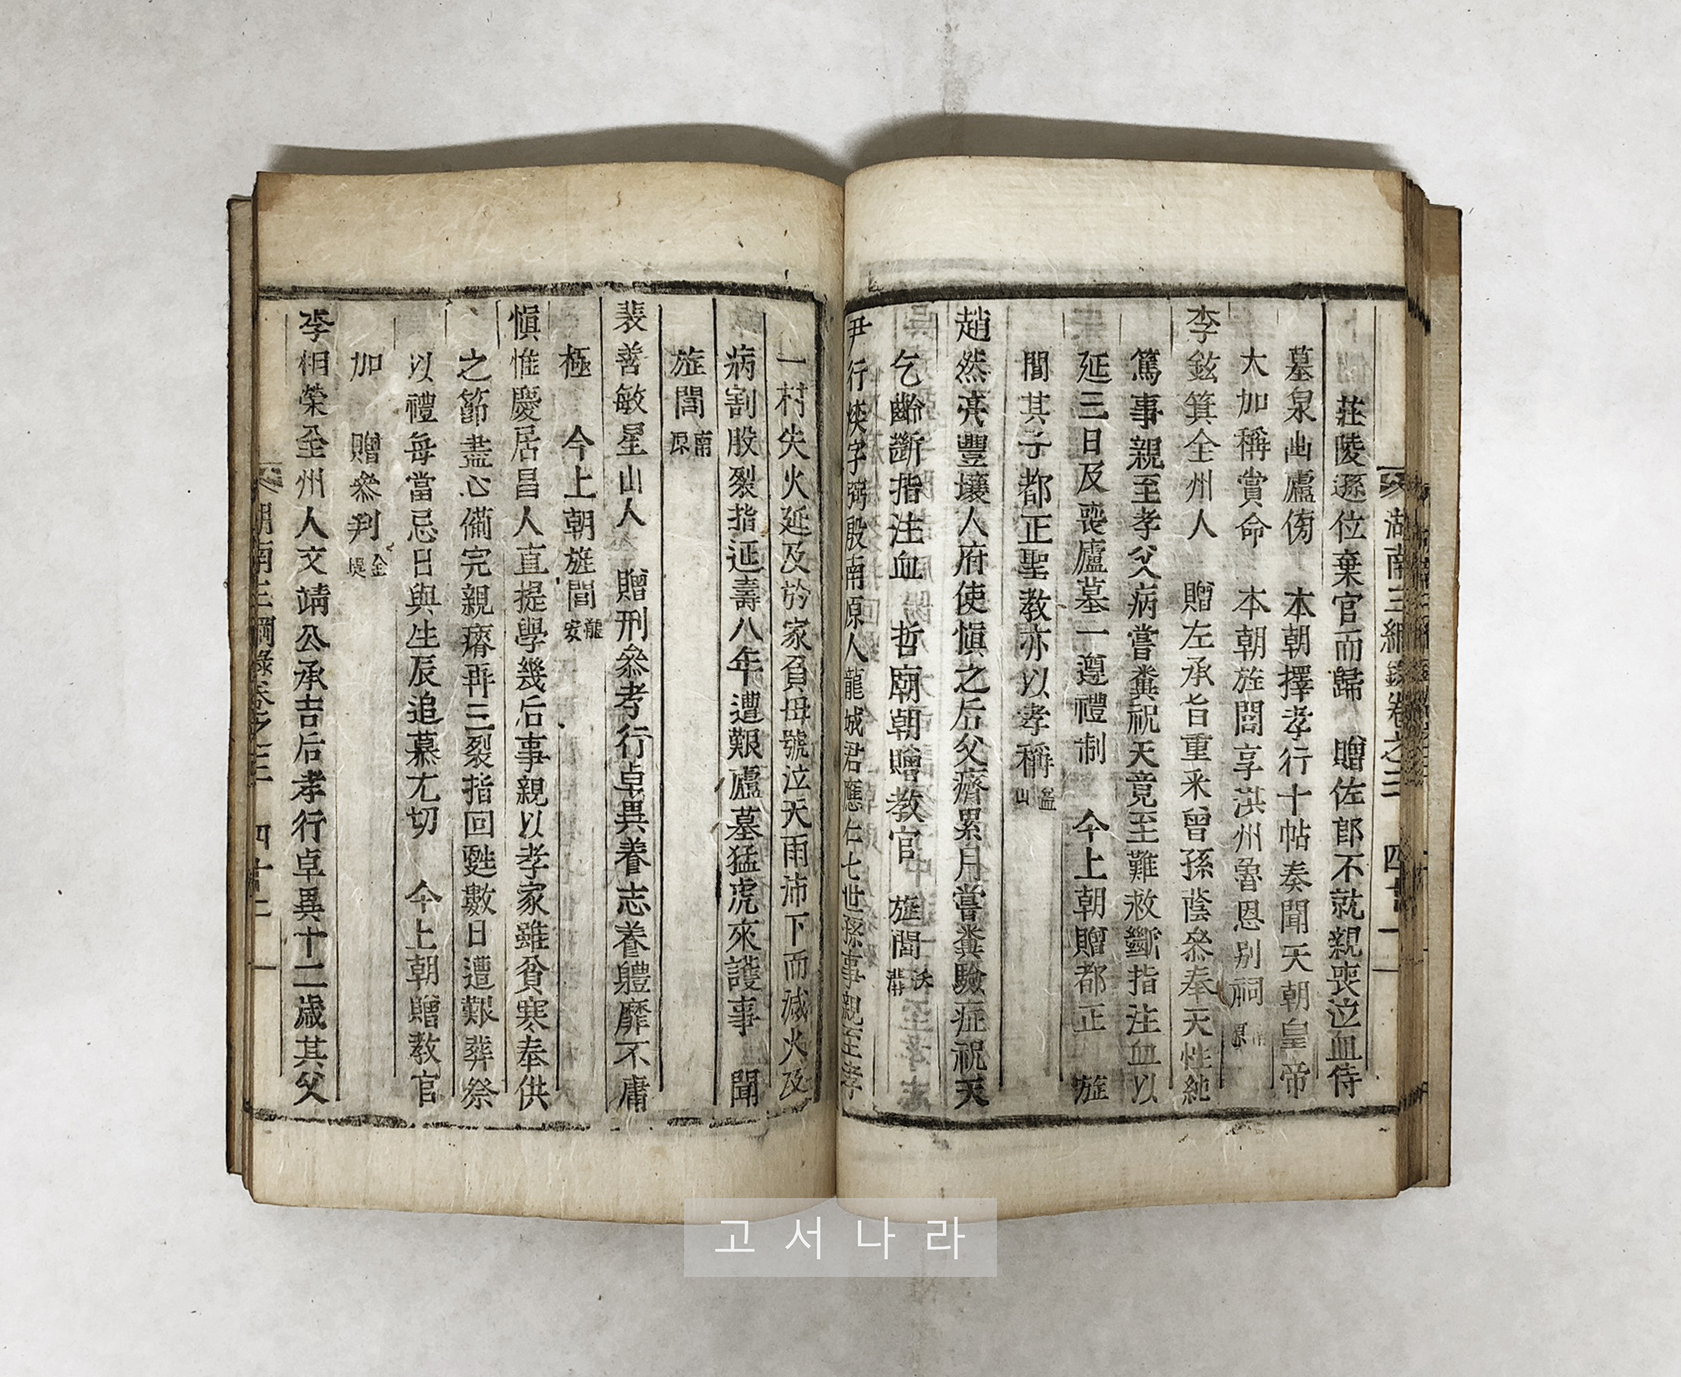 湖南三綱錄卷之三 四十一
莊陵遜位棄官而歸 贈佐郎不就親喪泣血侍
墓泉幽廬傍 本朝擇孝行十帖奏聞天朝皇帝
大加稱賞命 本朝旌閭享淇州魯恩别祠
李鉉箕全州人 贈左承旨重釆曾孫蔭叅奉天性純
篤事親至孝父病嘗糞祝天竟至難救斷指注血以
延三日及喪廬墓一遵禮制 今上朝贈都正 旌
閭其子都正聖教亦以孝稱 益山
趙然亮豐壤人府使愼之后父癠累月嘗糞驗症祝天
乞齡斷指注血 哲廟朝贈教官 旌閭
尹行焕字弼殷南原人龍城君應仁七世孫事親至孝
一村失火延及於家貧母號泣天雨沛下而滅火及
病割股裂指延壽八年遭艱廬墓猛虎來護事 聞
旌閭 南原
裴善敏星山人 贈刑叅孝行卓異養志養軆靡不庸
極 今上朝旌閭 龍安
愼惟慶居昌人直提學幾后事親以孝家雖貧寒奉供
之節盡心備完親癠再三裂指回甦數日遭艱葬祭
以禮每當忌日與生辰追慕尤切 今上朝贈敎官
加 贈叅判 金堤
李相榮全州人文靖公承吉后孝行卓異十二歲其父
湖南三綱錄卷之三 四十二
고서나라